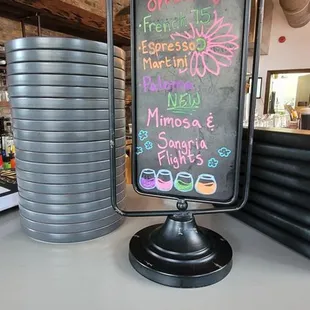 French 75
Espresso
Martini
Paloma
NEW
Mimosa &
Sangria
Flights